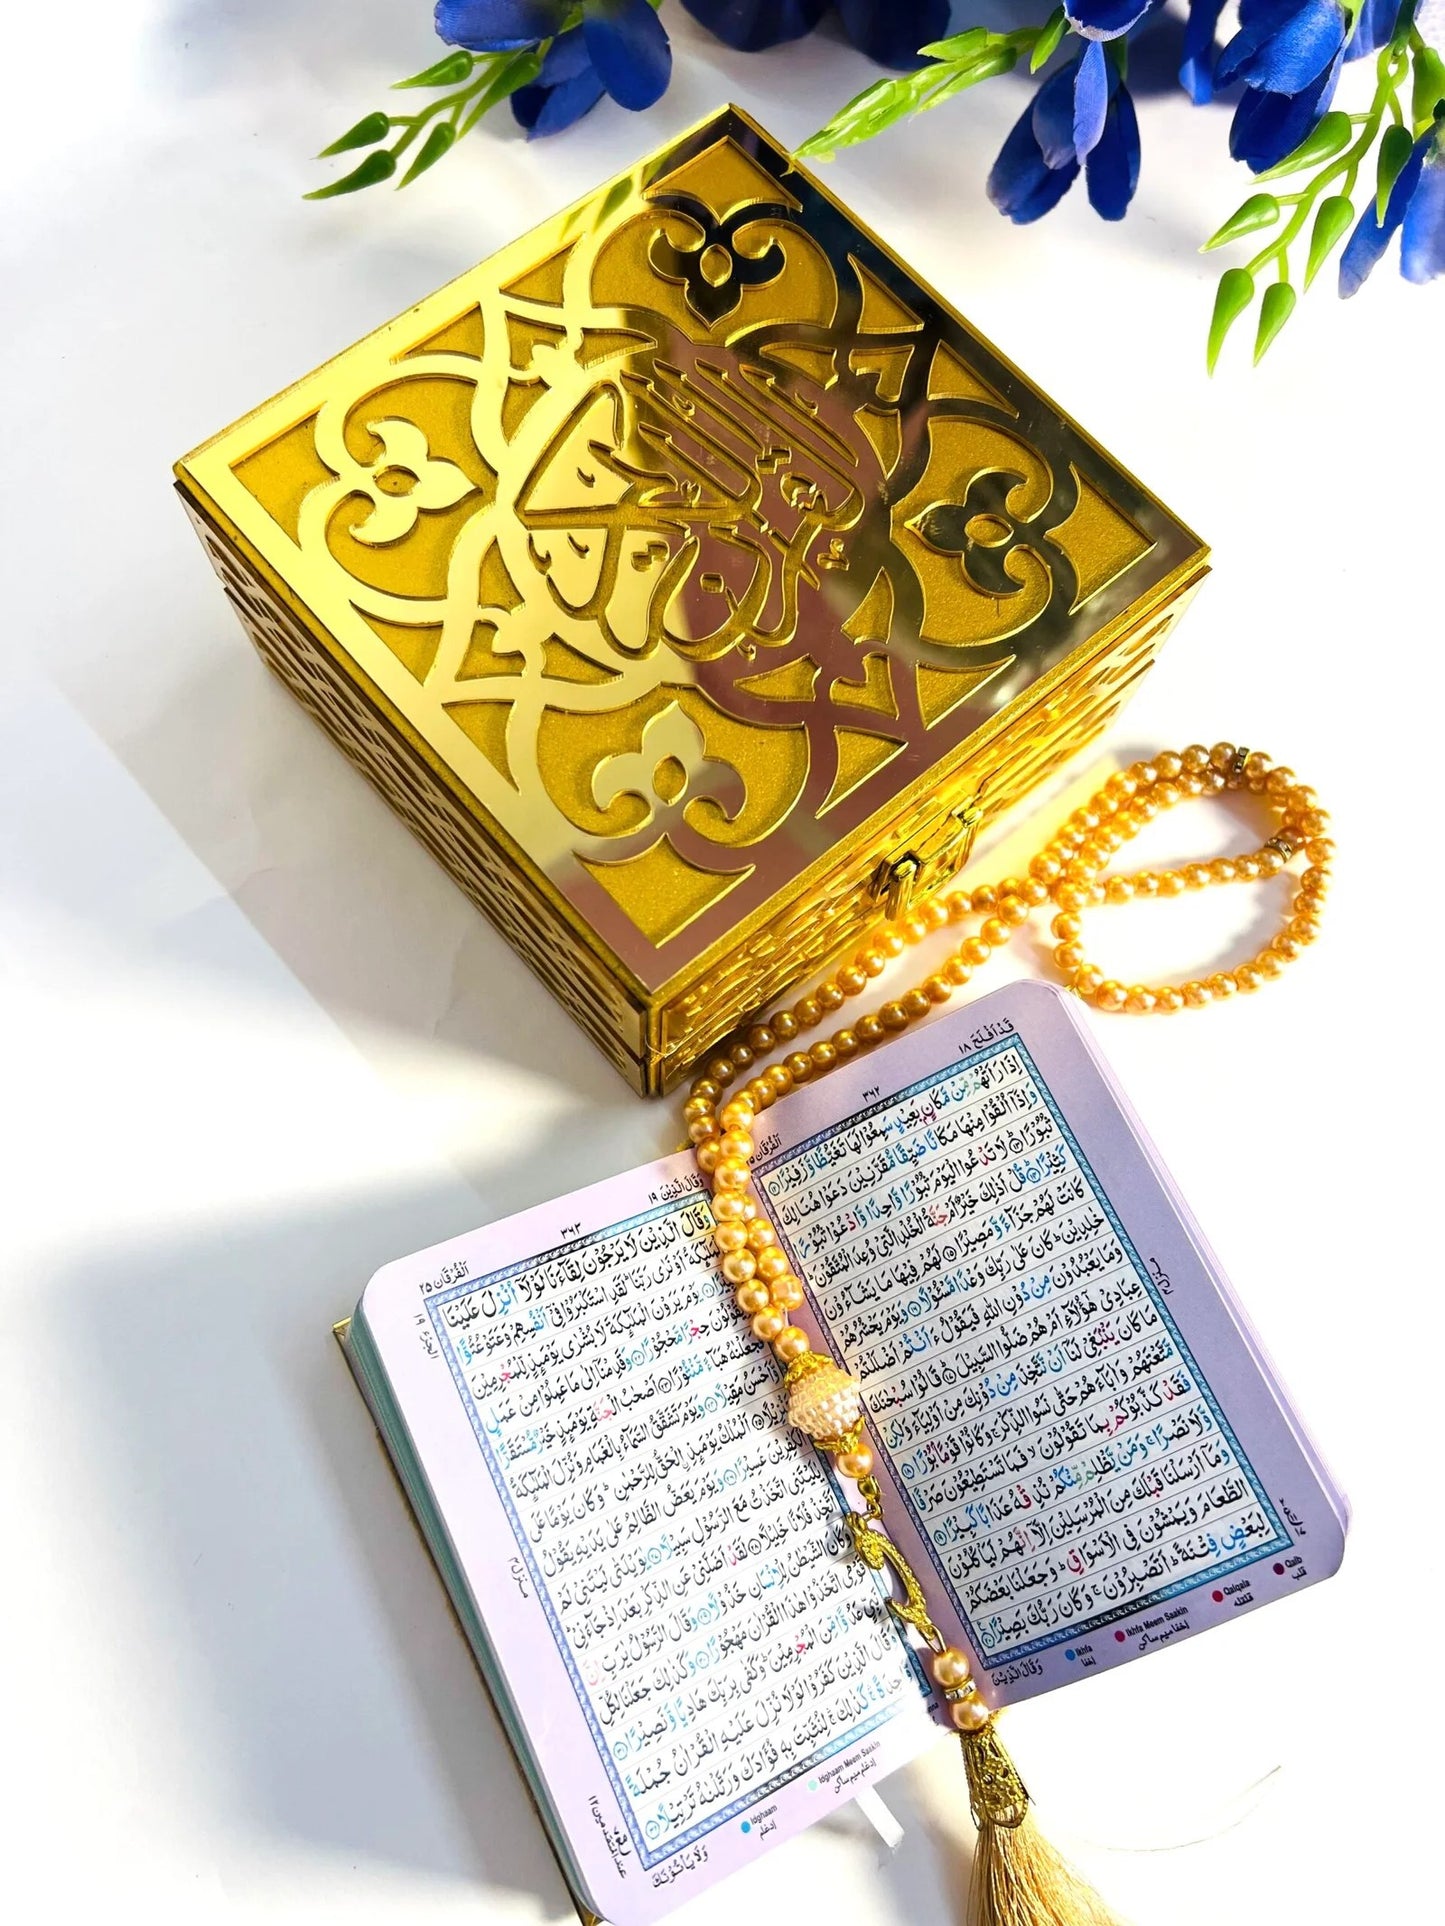 القرآن الكريم
قَدْ اَفْلَحَ ١٨
٣٦٢
اَلْفُرْقَان ٢٥
اِذَا رَاَتْهُمْ مِّنْ مَّكَانٍۭ بَعِيْدٍ سَمِعُوْا لَهَا تَغَيُّظًا وَّ زَفِيْرًا ۝١٢
وَاِذَآ اُلْقُوْا مِنْهَا مَكَانًا ضَيِّقًا مُّقَرَّنِيْنَ دَعَوْا هُنَالِكَ
ثُبُوْرًا ۝١٣ لَا تَدْعُوا الْيَوْمَ ثُبُوْرًا وَّاحِدًا وَّادْعُوْا ثُبُوْرًا
كَثِيْرًا ۝١٤ قُلْ اَذٰلِكَ خَيْرٌ اَمْ جَنَّةُ الْخُلْدِ الَّتِيْ وُعِدَ الْمُتَّقُوْنَ ؕ
كَانَتْ لَهُمْ جَزَآءً وَّ مَصِيْرًا ۝١٥ لَهُمْ فِيْهَا مَا يَشَآءُوْنَ
خٰلِدِيْنَ ؕ كَانَ عَلٰى رَبِّكَ وَعْدًا مَّسْئُوْلًا ۝١٦ وَيَوْمَ يَحْشُرُهُمْ
وَمَا يَعْبُدُوْنَ مِنْ دُوْنِ اللّٰهِ فَيَقُوْلُ ءَاَنْتُمْ اَضْلَلْتُمْ
عِبَادِيْ هٰٓؤُلَآءِ اَمْ هُمْ ضَلُّوا السَّبِيْلَ ۝١٧ قَالُوْا سُبْحٰنَكَ
مَا كَانَ يَنْۢبَغِيْ لَنَآ اَنْ نَّتَّخِذَ مِنْ دُوْنِكَ مِنْ اَوْلِيَآءَ وَلٰكِنْ
مَّتَّعْتَهُمْ وَاٰبَآءَهُمْ حَتّٰى نَسُوا الذِّكْرَ ۚ وَكَانُوْا قَوْمًۢا بُوْرًا ۝١٨
فَقَدْ كَذَّبُوْكُمْ بِمَا تَقُوْلُوْنَ ۙ فَمَا تَسْتَطِيْعُوْنَ صَرْفًا
وَّلَا نَصْرًا ۚ وَمَنْ يَّظْلِمْ مِّنْكُمْ نُذِقْهُ عَذَابًا كَبِيْرًا ۝١٩
وَمَآ اَرْسَلْنَا قَبْلَكَ مِنَ الْمُرْسَلِيْنَ اِلَّآ اِنَّهُمْ لَيَاْكُلُوْنَ
الطَّعَامَ وَيَمْشُوْنَ فِي الْاَسْوَاقِ ؕ وَجَعَلْنَا بَعْضَكُمْ
لِبَعْضٍ فِتْنَةً ؕ اَتَصْبِرُوْنَ ۚ وَكَانَ رَبُّكَ بَصِيْرًا ۝٢٠
وَقَالَ الَّذِيْنَ
Ikhfa
إخفا
Ikhfa Meem Saakin
إخفا ميم ساكن
Qalqala
قلقله
Qalb
قلب
وَقَالَ الَّذِيْنَ ١٩
٣٦٣
اَلْفُرْقَان ٢٥
الجزء ١٩
وَقَالَ الَّذِيْنَ لَا يَرْجُوْنَ لِقَآءَنَا لَوْلَآ اُنْزِلَ عَلَيْنَا
الْمَلٰٓئِكَةُ اَوْ نَرٰى رَبَّنَا ؕ لَقَدِ اسْتَكْبَرُوْا فِيْٓ اَنْفُسِهِمْ وَعَتَوْ عُتُوًّا
يَوْمَ يَرَوْنَ الْمَلٰٓئِكَةَ لَا بُشْرٰى يَوْمَئِذٍ لِّلْمُجْرِمِيْنَ
وَيَقُوْلُوْنَ حِجْرًا مَّحْجُوْرًا ۝٢٢ وَقَدِمْنَآ اِلٰى مَا عَمِلُوْا مِنْ عَمَلٍ
فَجَعَلْنٰهُ هَبَآءً مَّنْثُوْرًا ۝٢٣ اَصْحٰبُ الْجَنَّةِ يَوْمَئِذٍ خَيْرٌ مُّسْتَقَرًّا
وَّاَحْسَنُ مَقِيْلًا ۝٢٤ وَيَوْمَ تَشَقَّقُ السَّمَآءُ بِالْغَمَامِ وَنُزِّلَ الْمَلٰٓئِكَةُ
تَنْزِيْلًا ۝٢٥ اَلْمُلْكُ يَوْمَئِذِ ۨالْحَقُّ لِلرَّحْمٰنِ ؕ وَكَانَ يَوْمًا عَلَى
الْكٰفِرِيْنَ عَسِيْرًا ۝٢٦ وَيَوْمَ يَعَضُّ الظَّالِمُ عَلٰى يَدَيْهِ يَقُوْلُ
يٰلَيْتَنِى اتَّخَذْتُ مَعَ الرَّسُوْلِ سَبِيْلًا ۝٢٧ يٰوَيْلَتٰى لَيْتَنِيْ لَمْ
اَتَّخِذْ فُلَانًا خَلِيْلًا ۝٢٨ لَقَدْ اَضَلَّنِيْ عَنِ الذِّكْرِ بَعْدَ اِذْ جَآءَنِيْ ؕ
وَكَانَ الشَّيْطٰنُ لِلْاِنْسَانِ خَذُوْلًا ۝٢٩ وَقَالَ الرَّسُوْلُ يٰرَبِّ اِنَّ
قَوْمِى اتَّخَذُوْا هٰذَا الْقُرْاٰنَ مَهْجُوْرًا ۝٣٠ وَكَذٰلِكَ جَعَلْنَا لِكُلِّ
عَدُوًّا مِّنَ الْمُجْرِمِيْنَ ؕ وَكَفٰى بِرَبِّكَ هَادِيًا وَّنَصِيْرًا ۝٣١
وَقَالَ الَّذِيْنَ كَفَرُوْا لَوْلَا نُزِّلَ عَلَيْهِ الْقُرْاٰنُ جُمْلَةً
وَّاحِدَةً ۛۚ كَذٰلِكَ ۛۚ لِنُثَبِّتَ بِهٖ فُؤَادَكَ وَرَتَّلْنٰهُ تَرْتِيْلًا ۝٣٢
وَلَا يَاْتُوْنَكَ
Idghaam
إدغام
Idghaam Meem Saakin
إدغام ميم ساكن